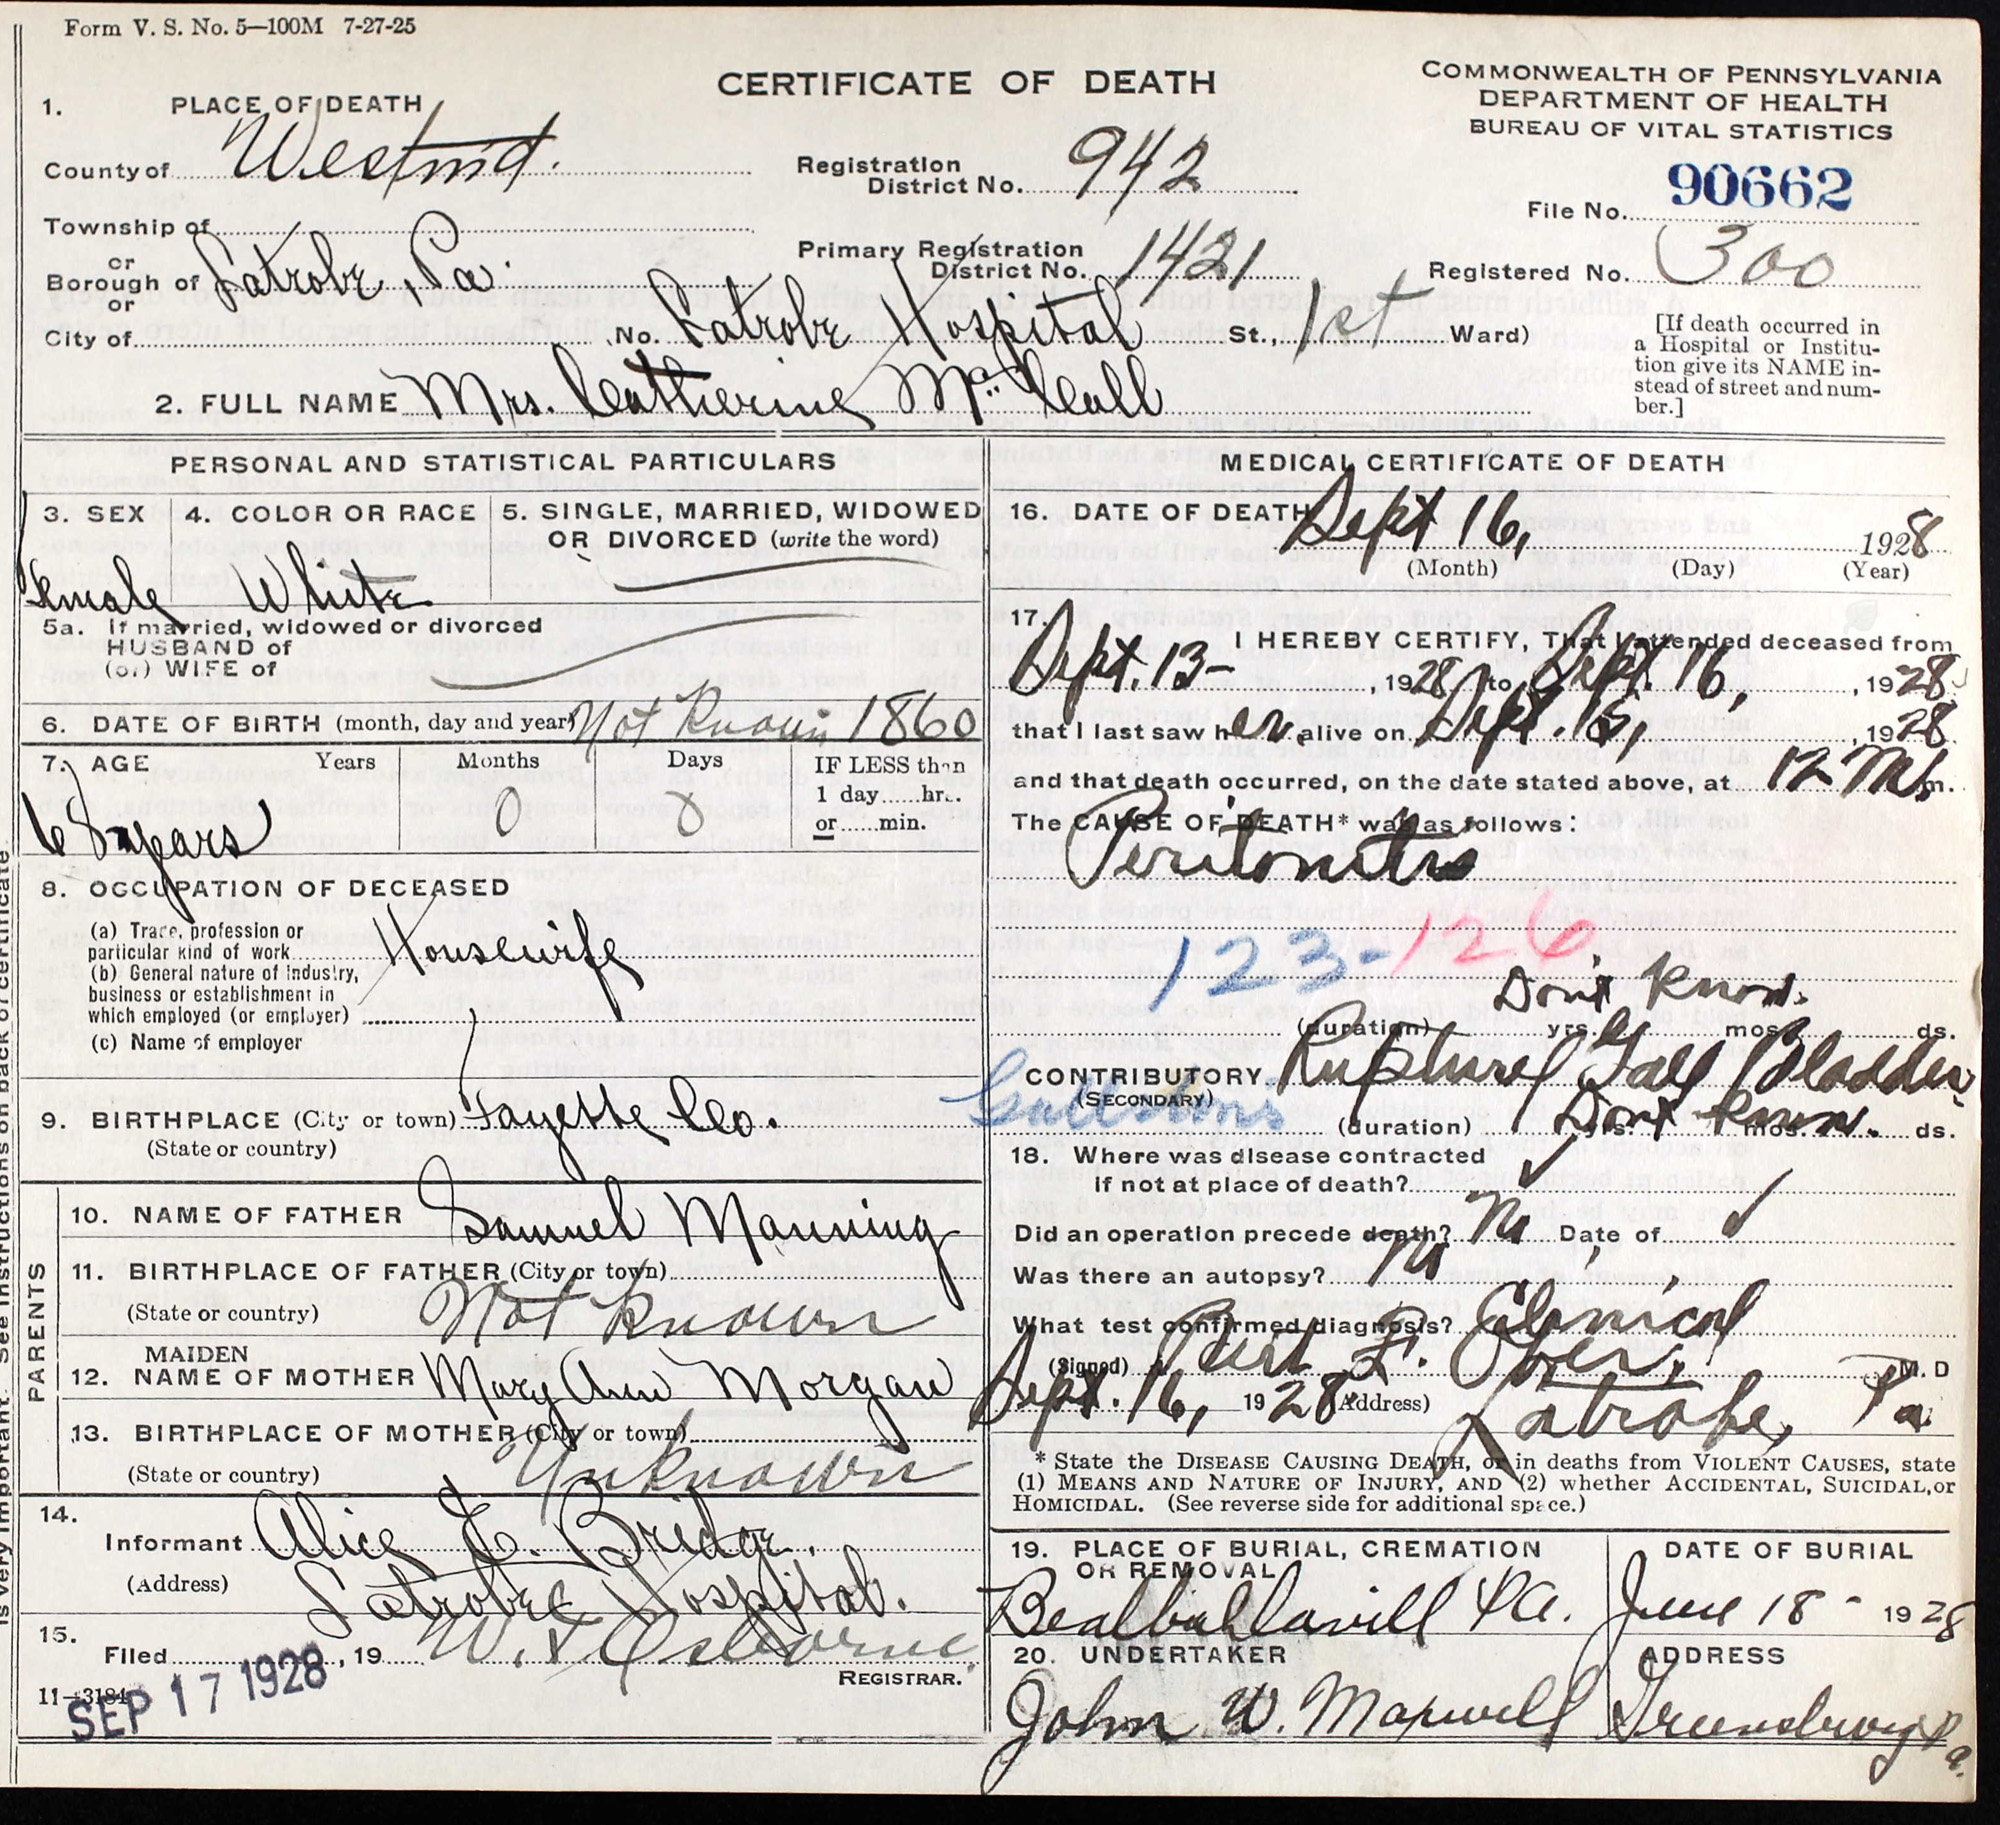 Form V. S. No. 5—100M 7-27-25
CERTIFICATE OF DEATH
COMMONWEALTH OF PENNSYLVANIA
DEPARTMENT OF HEALTH
BUREAU OF VITAL STATISTICS
1. PLACE OF DEATH
County of Westm'd.
Registration District No. 942
File No. 90662
Township of
or
Borough of Latrobe, Pa.
or
City of
Primary Registration District No. 1421
Registered No. 300
No. Latrobe Hospital St., 1st Ward)
[If death occurred in
a Hospital or Institu-
tion give its NAME in-
stead of street and num-
ber.]
2. FULL NAME Mrs. Catherine Mc. Call
PERSONAL AND STATISTICAL PARTICULARS
3. SEX 4. COLOR OR RACE 5. SINGLE, MARRIED, WIDOWED
OR DIVORCED (write the word)
Female White
5a. If married, widowed or divorced
HUSBAND of
(or) WIFE of
6. DATE OF BIRTH (month, day and year) Not Known 1860
7. AGE Years Months Days IF LESS than
1 day.....hr..
or.....min.
68 years 0 0
8. OCCUPATION OF DECEASED
(a) Trade, profession or
particular kind of work Housewife
(b) General nature of Industry,
business or establishment in
which employed (or employer)
(c) Name of employer
9. BIRTHPLACE (City or town) Fayette Co.
(State or country)
PARENTS
10. NAME OF FATHER Samuel Manning
11. BIRTHPLACE OF FATHER (City or town)
(State or country) Not Known
12. MAIDEN NAME OF MOTHER Mary Ann Morgan
13. BIRTHPLACE OF MOTHER (City or town)
(State or country) Unknown
14.
Informant Alice E. Bridge.
(Address) Latrobe Hospital.
15.
Filed SEP 17 1928, 19 W. Osborne
REGISTRAR.
11—3184
MEDICAL CERTIFICATE OF DEATH
16. DATE OF DEATH Sept 16, 1928
(Month) (Day) (Year)
17. I HEREBY CERTIFY, That I attended deceased from
Sept. 13-, 1928, to Sept. 16, , 1928
that I last saw her alive on Sept. 16, , 1928
and that death occurred, on the date stated above, at 12 M. m.
The CAUSE OF DEATH* was as follows:
Peritonitis
123-126
Don't know.
(duration) yrs. mos. ds.
CONTRIBUTORY Ruptured Gall Bladder
(SECONDARY)
Gallstones
Don't know.
(duration) yrs. mos. ds.
18. Where was disease contracted
if not at place of death? ✓
Did an operation precede death? No Date of ✓
Was there an autopsy? No
What test confirmed diagnosis? Clinical
(Signed) M. D
Sept. 16, 1928 (Address) Latrobe, Pa
* State the DISEASE CAUSING DEATH, or in deaths from VIOLENT CAUSES, state
(1) MEANS AND NATURE OF INJURY, AND (2) whether ACCIDENTAL, SUICIDAL, or
HOMICIDAL. (See reverse side for additional space.)
19. PLACE OF BURIAL, CREMATION
OR REMOVAL
DATE OF BURIAL
PA. June 18 - 1928
20. UNDERTAKER ADDRESS
John W. Maxwell Greensburg Pa.
is very important. See instructions on back of certificate.